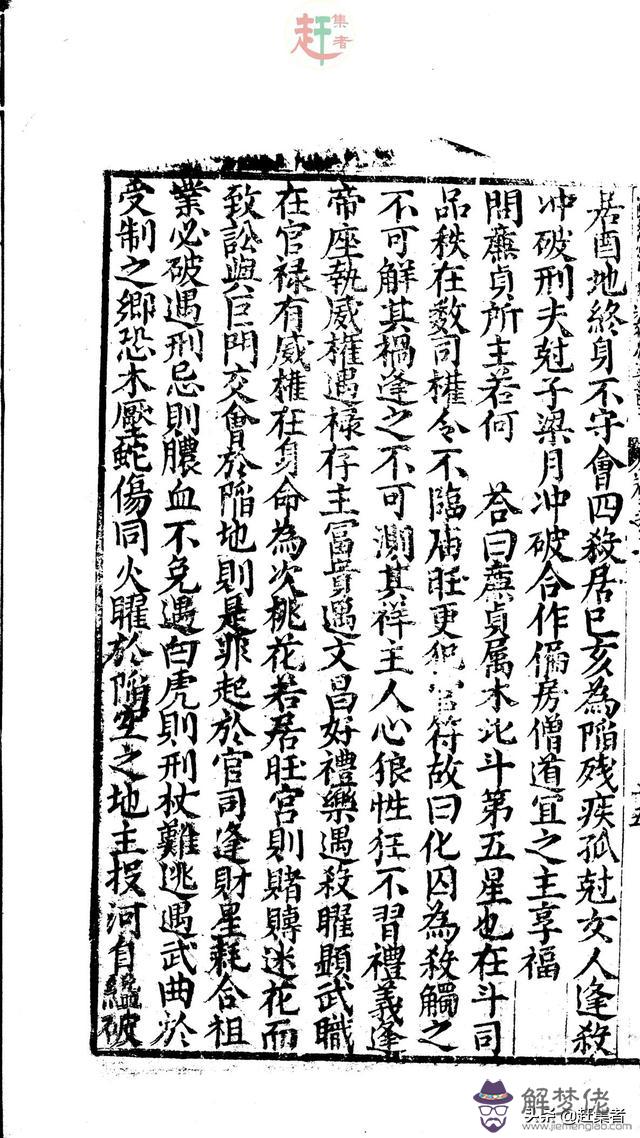 赶集者
居酉地終身不守會四殺居巳亥為陷残疾孤尅女人逢殺
冲破刑夫尅子梁月冲破合作偏房僧道宜之主享福
問廉貞所主若何 荅曰廉貞属木北斗第五星也在斗司
品秩在數司權令不臨庙旺更犯官符故曰化囚為殺觸之
不可解其禍逢之不可測其祥主人心狼性狂不習禮義逢
帝座執威權遇禄存主冨貴遇文昌好禮樂遇殺曜顯武職
在官禄有威權在身命為次桃花若居旺宮則賭賻迷花而
致訟與巨門交會於陷地則是非起於官司逢財星耗合祖
業必破遇刑忌則膿血不免遇白虎則刑杖難逃遇武曲於
受制之鄉恐木壓蛇傷同火曜於陷空之地主投河自縊破
解梦佬
头条 @赶集者
www.jiemenglao.com